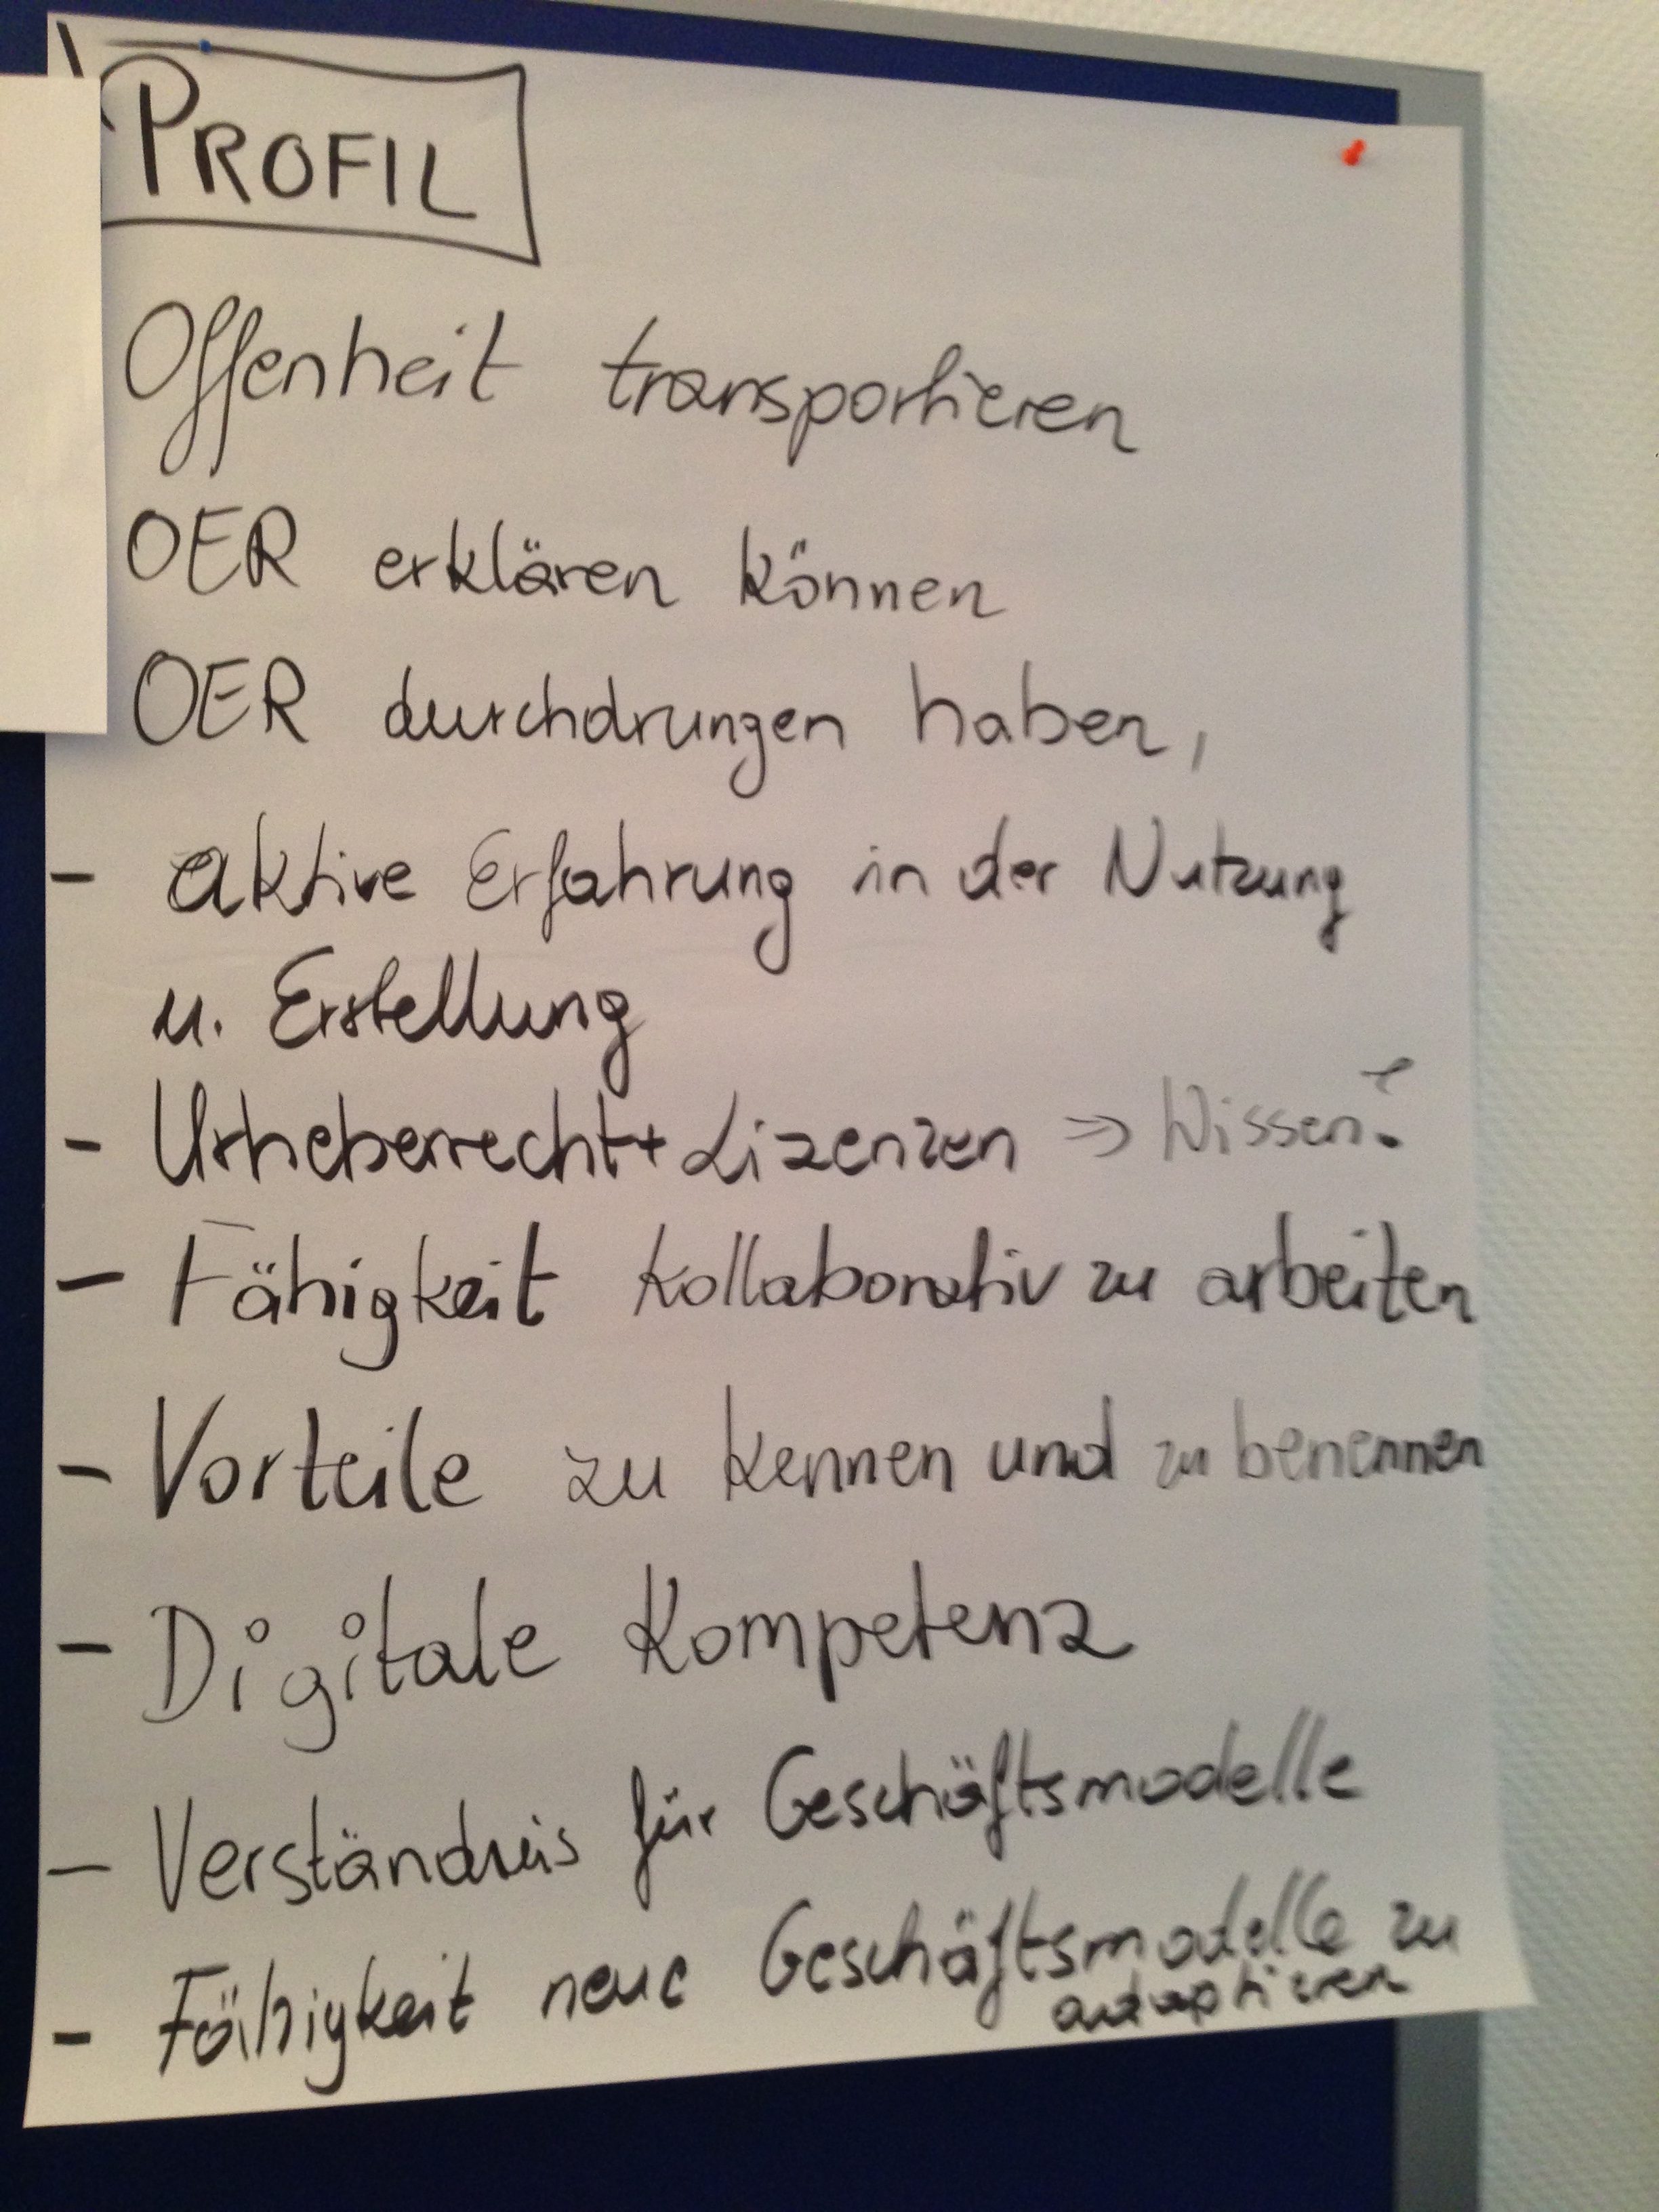 PROFIL
Offenheit transportieren
OER erklären können
OER durchdrungen haben,
- aktive Erfahrung in der Nutzung
u. Erstellung
- Urheberrecht + Lizenzen => Wissen?
- Fähigkeit kollaborativ zu arbeiten
- Vorteile zu kennen und zu benennen
- Digitale Kompetenz
- Verständnis für Geschäftsmodelle
- Fähigkeit neue Geschäftsmodelle zu
adaptieren